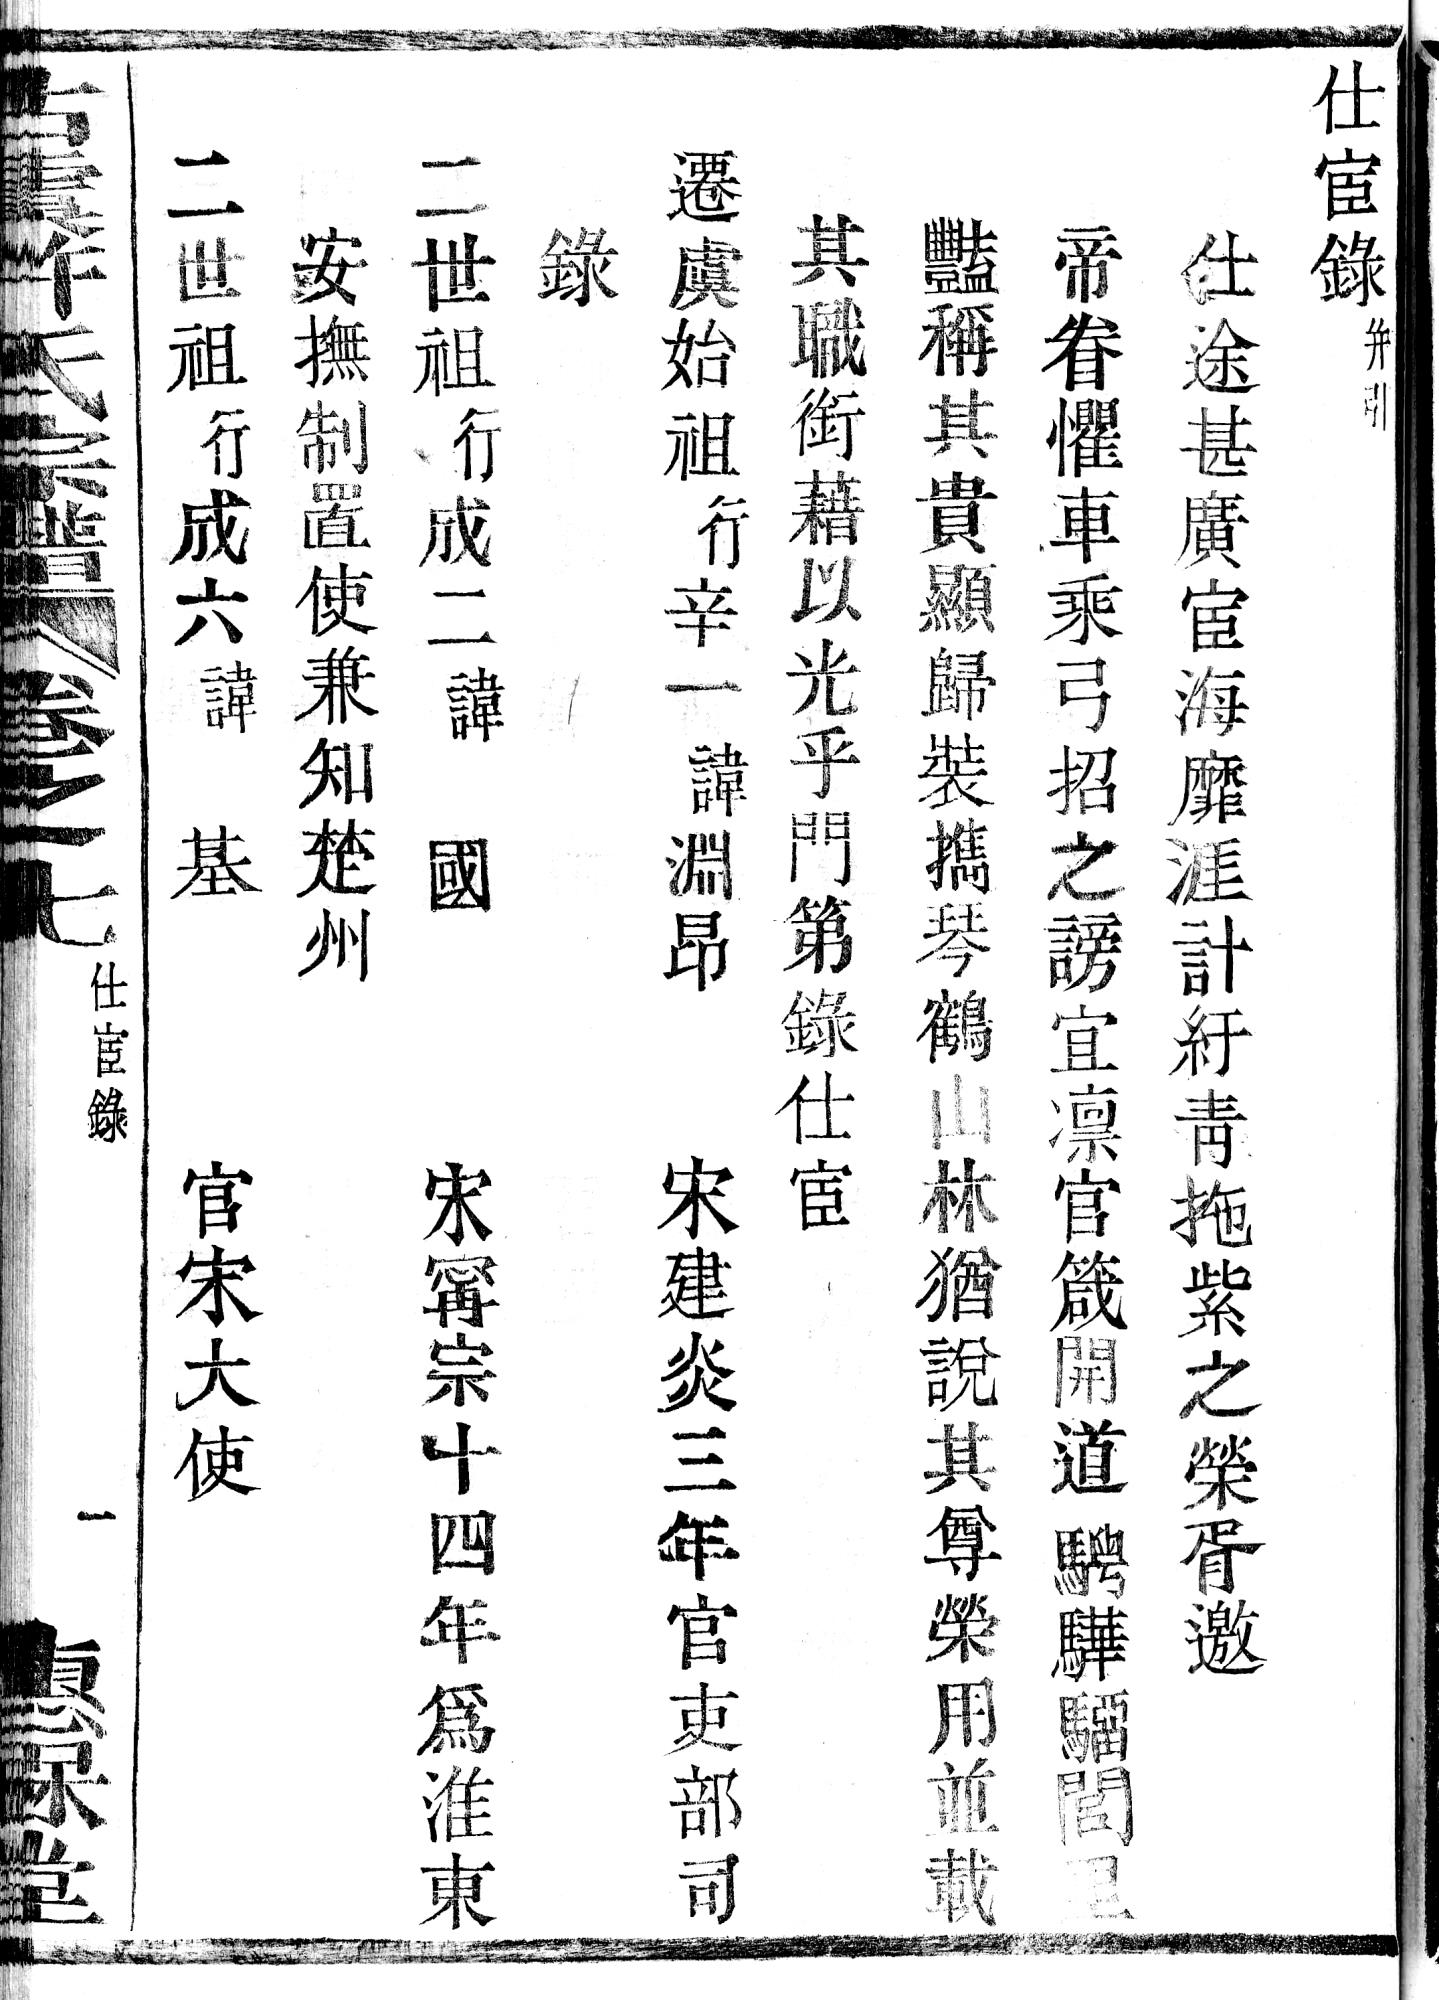 仕宦錄 并引
仕途甚廣宦海靡涯計紆靑拖紫之榮胥邀
帝眷懼車乘弓招之謗宜凛官箴開道騁驊騮閭里
豔稱其貴顯歸裝攜琴鶴山林猶說其尊榮用並載
其職銜藉以光乎門第錄仕宦
遷虞始祖行辛一諱淵昂 宋建炎三年官吏部司
錄
二世祖行成二諱國 宋寗宗十四年爲淮東
安撫制置使兼知楚州
二世祖行成六諱基 官宋大使
氏宗譜 卷之七 仕宦錄 一 堂